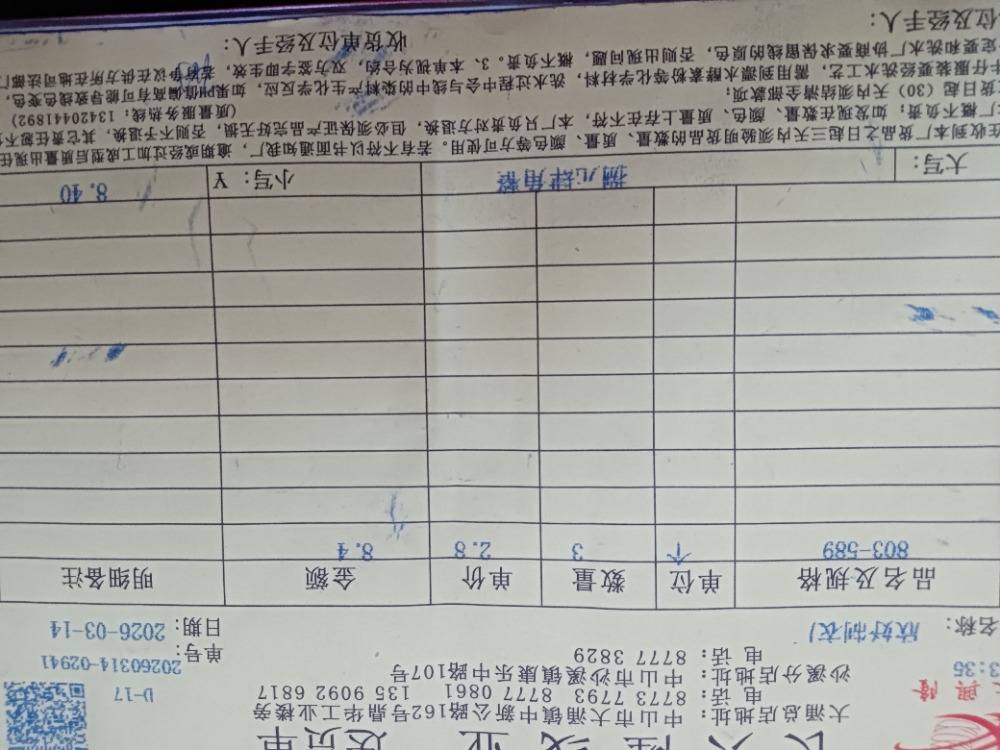 兴隆线业 送货单
興隆
大涌总店地址：中山市大涌镇中新公路162号鼎华工业楼旁
电话：8773 7793 8777 0861 135 9092 6817
沙溪分店地址：中山市沙溪镇康乐中路107号
电话：8777 3829
D-17
3:35
单号：20260314-02941
名称：欣好制衣厂
日期：2026-03-14
品名及规格 单位 数量 单价 金额 明细备注
803-589 个 3 2.8 8.4
大写：捌元肆角整 小写：¥ 8.40
在收到本厂货品之日起三天内须验明货品的数量、质量、颜色等方可使用。若有不符以书面通知我厂，逾期或经过加工成型后质量出现任
厂概不负责；如发现在数量、颜色、质量上存在不符，本厂只负责对方退换，但必须保证产品完好无损，否则不予退换，其它责任恕不
货日起（30）天内须结清全部款项； （质量服务热线：13420441892）
牛仔服装要经洗水工艺，需用到漂水酵素粉等化学材料，洗水过程中会与线中的染料产生化学反应，如果PH值偏高有可能导致线色变色，
定要和洗水厂协商要求保留线的原色，否则出现问题，概不负责。3、本单视为合约，双方签字即生效，若有争议在供方所在地司法部门
位及经手人： 收货单位及经手人：